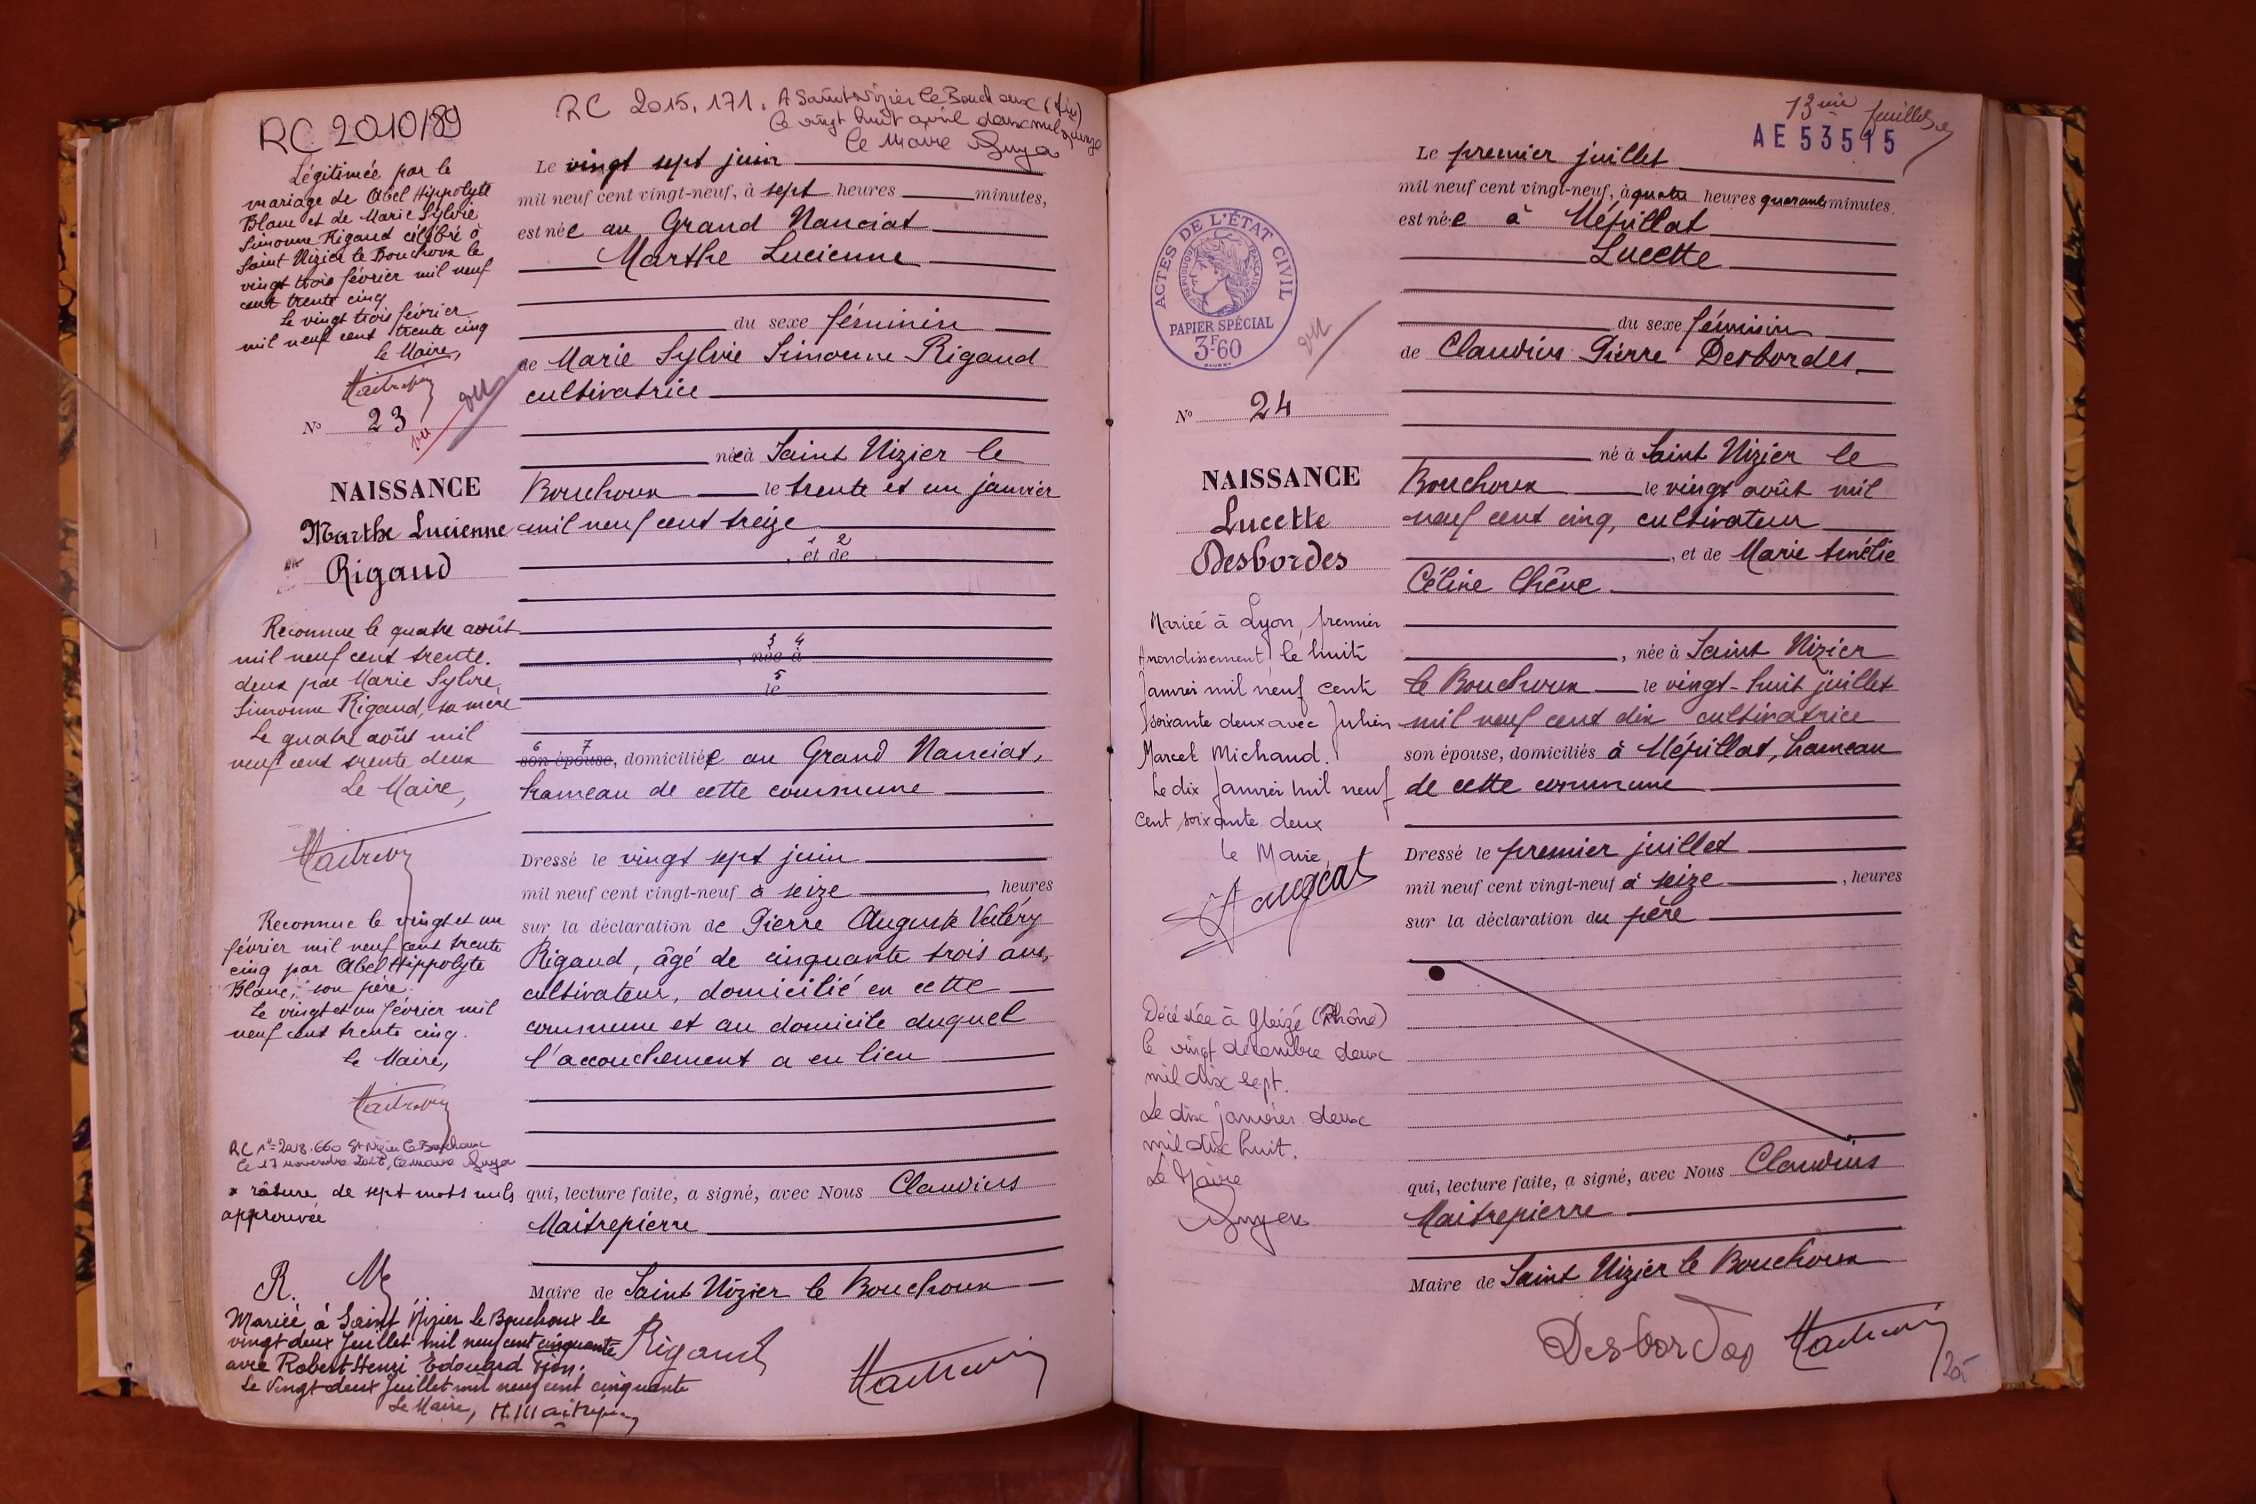 RC 2010/89
RC 2015.171. A Saint Nizier Le Bouchoux (Ain)
Le vingt huit avril deux mil quinze
Le Maire
Légitimée par le
mariage de Abel Hippolyte
Blanc et de Marie Sylvie
Simonne Rigaud célébré à
Saint Nizier le Bouchoux le
vingt trois février mil neuf
cent trente cinq
Le vingt trois février
mil neuf cent trente cinq
Le Maire,
vu
No 23
vu
NAISSANCE
Marthe Lucienne
Rigaud
Reconnue le quatre août
mil neuf cent trente.
deux par Marie Sylvie,
Simonne Rigaud, sa mère
Le quatre août mil
neuf cent trente deux
Le Maire,
Reconnue le vingt et un
février mil neuf cent trente
cinq par Abel Hippolyte
Blanc, son père.
Le vingt et un février mil
neuf cent trente cinq.
Le Maire,
RC n° 2018.660 St Nizier Le Bouchoux
Le 17 novembre 2018, Le Maire
x râture de sept mots nuls
approuvée
R. M
Mariée à Saint Nizier le Bouchoux le
vingt deux Juillet mil neuf cent cinquante
avec Robert Henri Edouard
Le Vingt deux Juillet mil neuf cent cinquante
Le Maire, H. Maitrepierre
Le vingt sept juin
mil neuf cent vingt-neuf, à sept heures minutes,
est née au Grand Nanciat
Marthe Lucienne
du sexe féminin
de Marie Sylvie Simonne Rigaud
cultivatrice
née à Saint Nizier le
Bouchoux le trente et un janvier
mil neuf cent treize
1 2
, et de
3 4
, née à
5
le
6 7
son épouse, domiciliée au Grand Nanciat,
hameau de cette commune
Dressé le vingt sept juin
mil neuf cent vingt-neuf à seize , heures
sur la déclaration de Pierre Auguste Valéry
Rigaud, âgé de cinquante trois ans,
cultivateur, domicilié en cette
commune et au domicile duquel
l'accouchement a eu lieu
qui, lecture faite, a signé, avec Nous Claudius
Maitrepierre
Maire de Saint Nizier le Bouchoux
Rigaud
13ème feuillet
AE 53515
ACTES DE L'ÉTAT CIVIL
RÉPUBLIQUE FRANÇAISE
PAPIER SPÉCIAL
3F60
vu
No 24
NAISSANCE
Lucette
Desbordes
Mariée à Lyon, premier
Arrondissement le huit
Janvier mil neuf cent
soixante deux avec Julien
Marcel Michaud.
Le dix Janvier mil neuf
cent soixante deux
Le Maire
Décédée à Gleizé (Rhône)
le vingt décembre deux
mil dix sept.
Le dix janvier deux
mil dix huit.
Le Maire
Le premier juillet
mil neuf cent vingt-neuf, à quatre heures quarante minutes.
est née à Mépillat
Lucette
du sexe féminin
de Claudius Pierre Desbordes,
né à Saint Nizier le
Bouchoux le vingt août mil
neuf cent cinq, cultivateur
, et de Marie Amélie
Céline Chêne
, née à Saint Nizier
le Bouchoux le vingt-huit juillet
mil neuf cent dix cultivatrice
son épouse, domiciliés à Mépillat, hameau
de cette commune
Dressé le premier juillet
mil neuf cent vingt-neuf à seize , heures
sur la déclaration du père
qui, lecture faite, a signé, avec Nous Claudius
Maitrepierre
Maire de Saint Nizier le Bouchoux
Desbordes